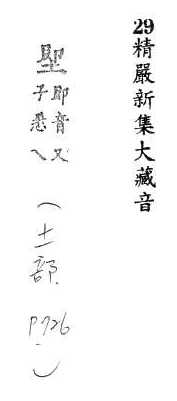 29精嚴新集大藏音
堲
即音又
子悉乀
(土部 P726)